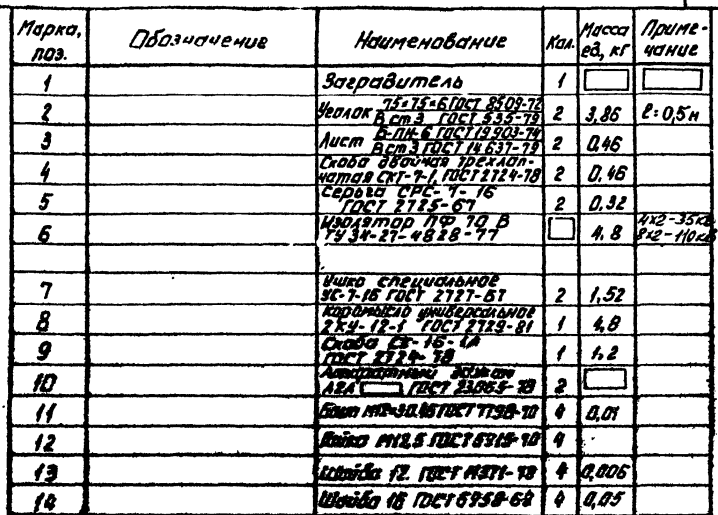 Марка, поз. Обозначение Наименование Кол. Масса ед, кг Примечание
1 Заградитель 1
2 Уголок 75×75×6 ГОСТ 8509-72 2 3,86 ℓ=0,5м
В ст 3 ГОСТ 535-79
3 Лист Б-ПН-6 ГОСТ 19903-74 2 0,46
В ст 3 ГОСТ 14637-79
4 Скоба двойная трехлап- 2 0,46
чатая СКТ-7-1, ГОСТ 2724-78
5 Серьга СРС-7-16 2 0,32
ГОСТ 2725-67
6 Изолятор ПФ 70 В 4,8 4х2-35кВ
ТУ 34-27-4828-77 8х2-110кВ
7 Ушко специальное 2 1,52
УС-7-16 ГОСТ 2727-67
8 Коромысло универсальное 1 4,8
2КУ-12-1 ГОСТ 2729-81
9 Скоба СК-16-1А 1 1,2
ГОСТ 2724-78
10 Аппаратный зажим 2
А2А ГОСТ 23065-78
11 Болт ГОСТ 7798-70 4 0,01
12 Гайка М12,5 ГОСТ 5915-70 4
13 Шайба 12 ГОСТ 11371-78 4 0,006
14 Шайба 16 ГОСТ 6958-68 4 0,05